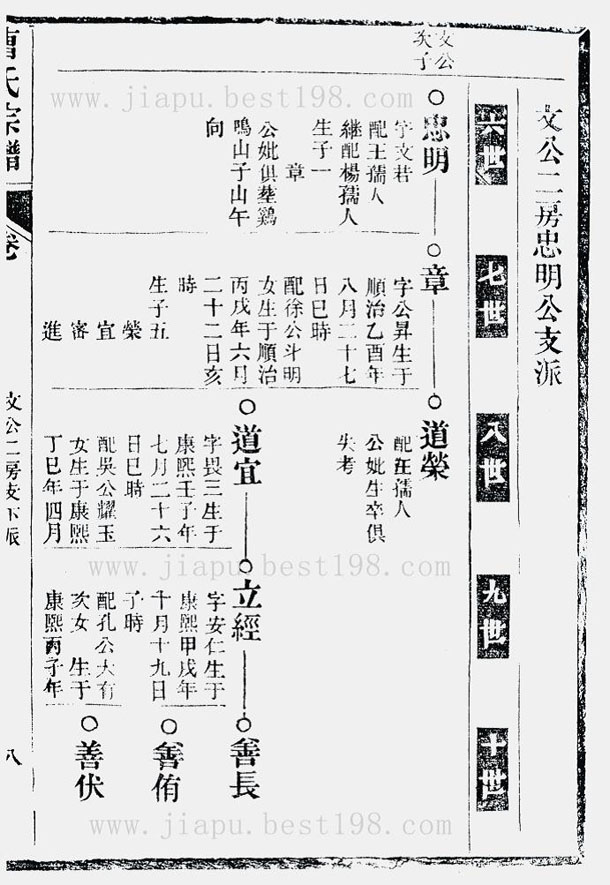 文公二房忠明公支派
六世
七世
八世
九世
十世
文公
次子
忠明
字文若
配王孺人
継配楊孺人
生子一
章
公妣俱塟鷄
鳴山子山午
向
章
字公昇生于
順治乙酉年
八月二十七
日巳時
配徐公斗明
女生于順治
丙戌年六月
二十二日亥
時
生子五
榮
宜
審
進
道榮
配汪孺人
公妣生卒俱
失考
道宜
字畏三生于
康熙壬子年
七月二十六
日巳時
配吳公耀玉
女生于康熙
丁巳年四月
立經
字安仁生于
康熙甲戌年
十月十九日
子時
配孔公大有
次女 生于
康熙丙子年
善長
善侑
善伏
曹氏宗譜
卷
文公二房支下派
八
www.jiapu.best198.com
www.jiapu.best198.com
www.jiapu.best198.com